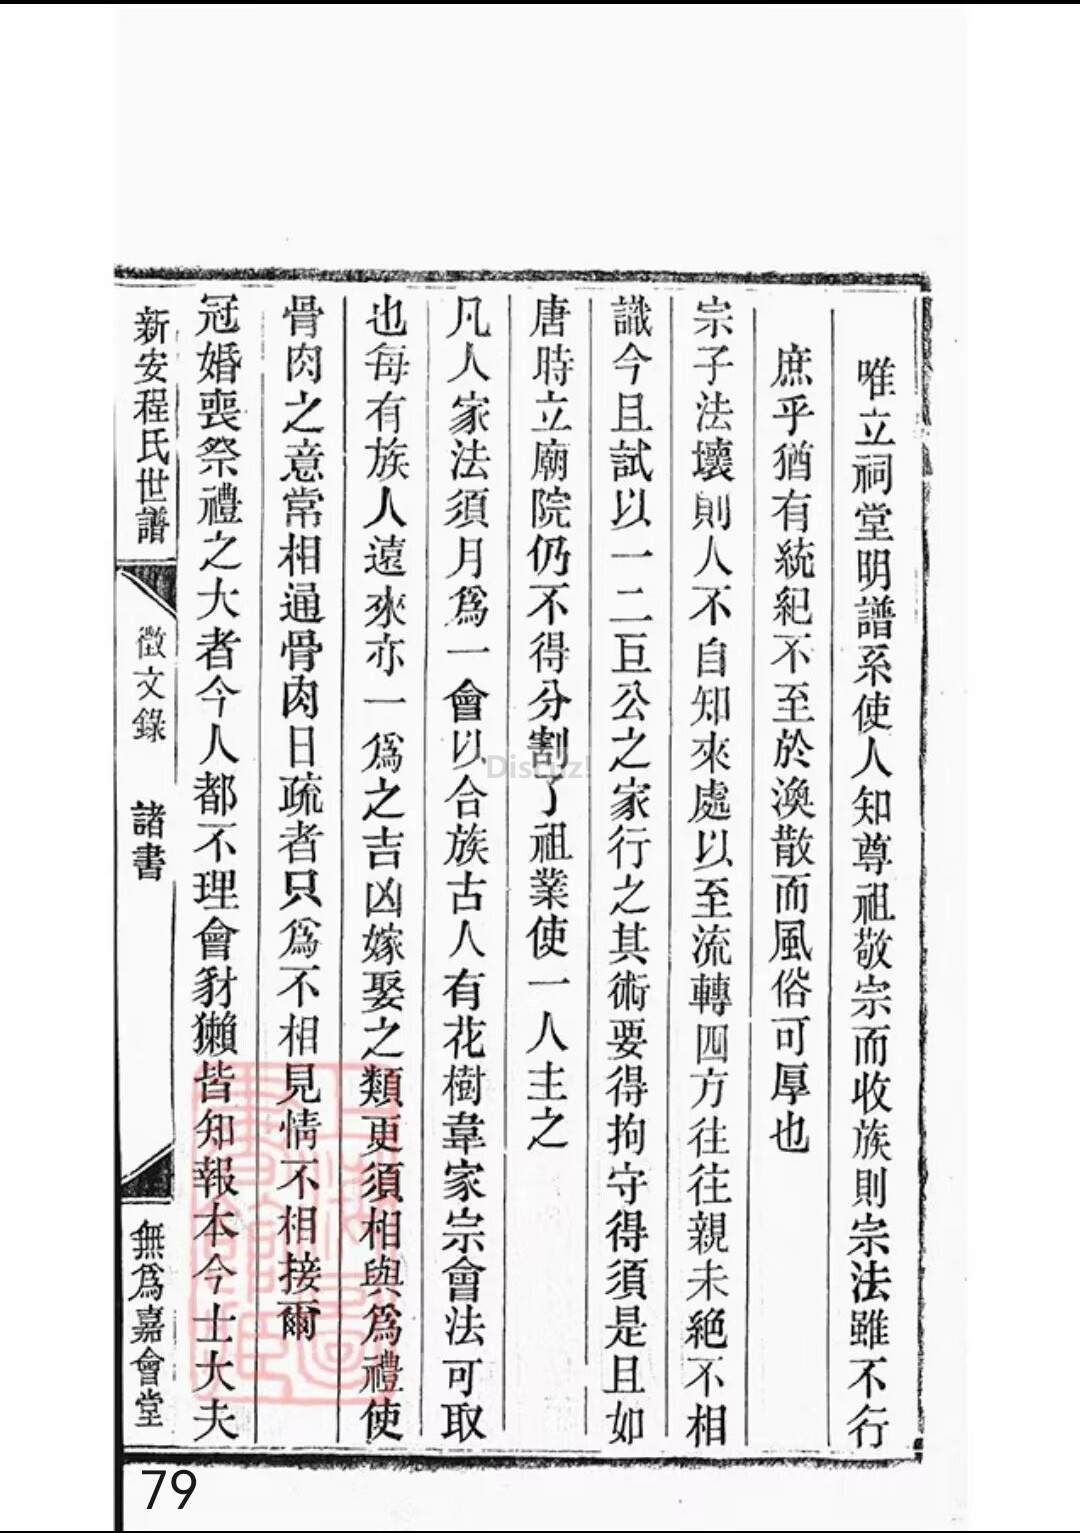 唯立祠堂明譜系使人知尊祖敬宗而收族則宗法雖不行
庶乎猶有統紀不至於渙散而風俗可厚也
宗子法壞則人不自知來處以至流轉四方往往親未絶不相
識今且試以一二巨公之家行之其術要得拘守得須是且如
唐時立廟院仍不得分割了祖業使一人主之
凡人家法須月爲一會以合族古人有花樹韋家宗會法可取
也每有族人遠來亦一爲之吉凶嫁娶之類更須相與爲禮使
骨肉之意常相通骨肉日疏者只爲不相見情不相接爾
冠婚喪祭禮之大者今人都不理會豺獺皆知報本今士大夫
新安程氏世譜
徵文錄 諸書
無爲嘉會堂
Discuz!
79